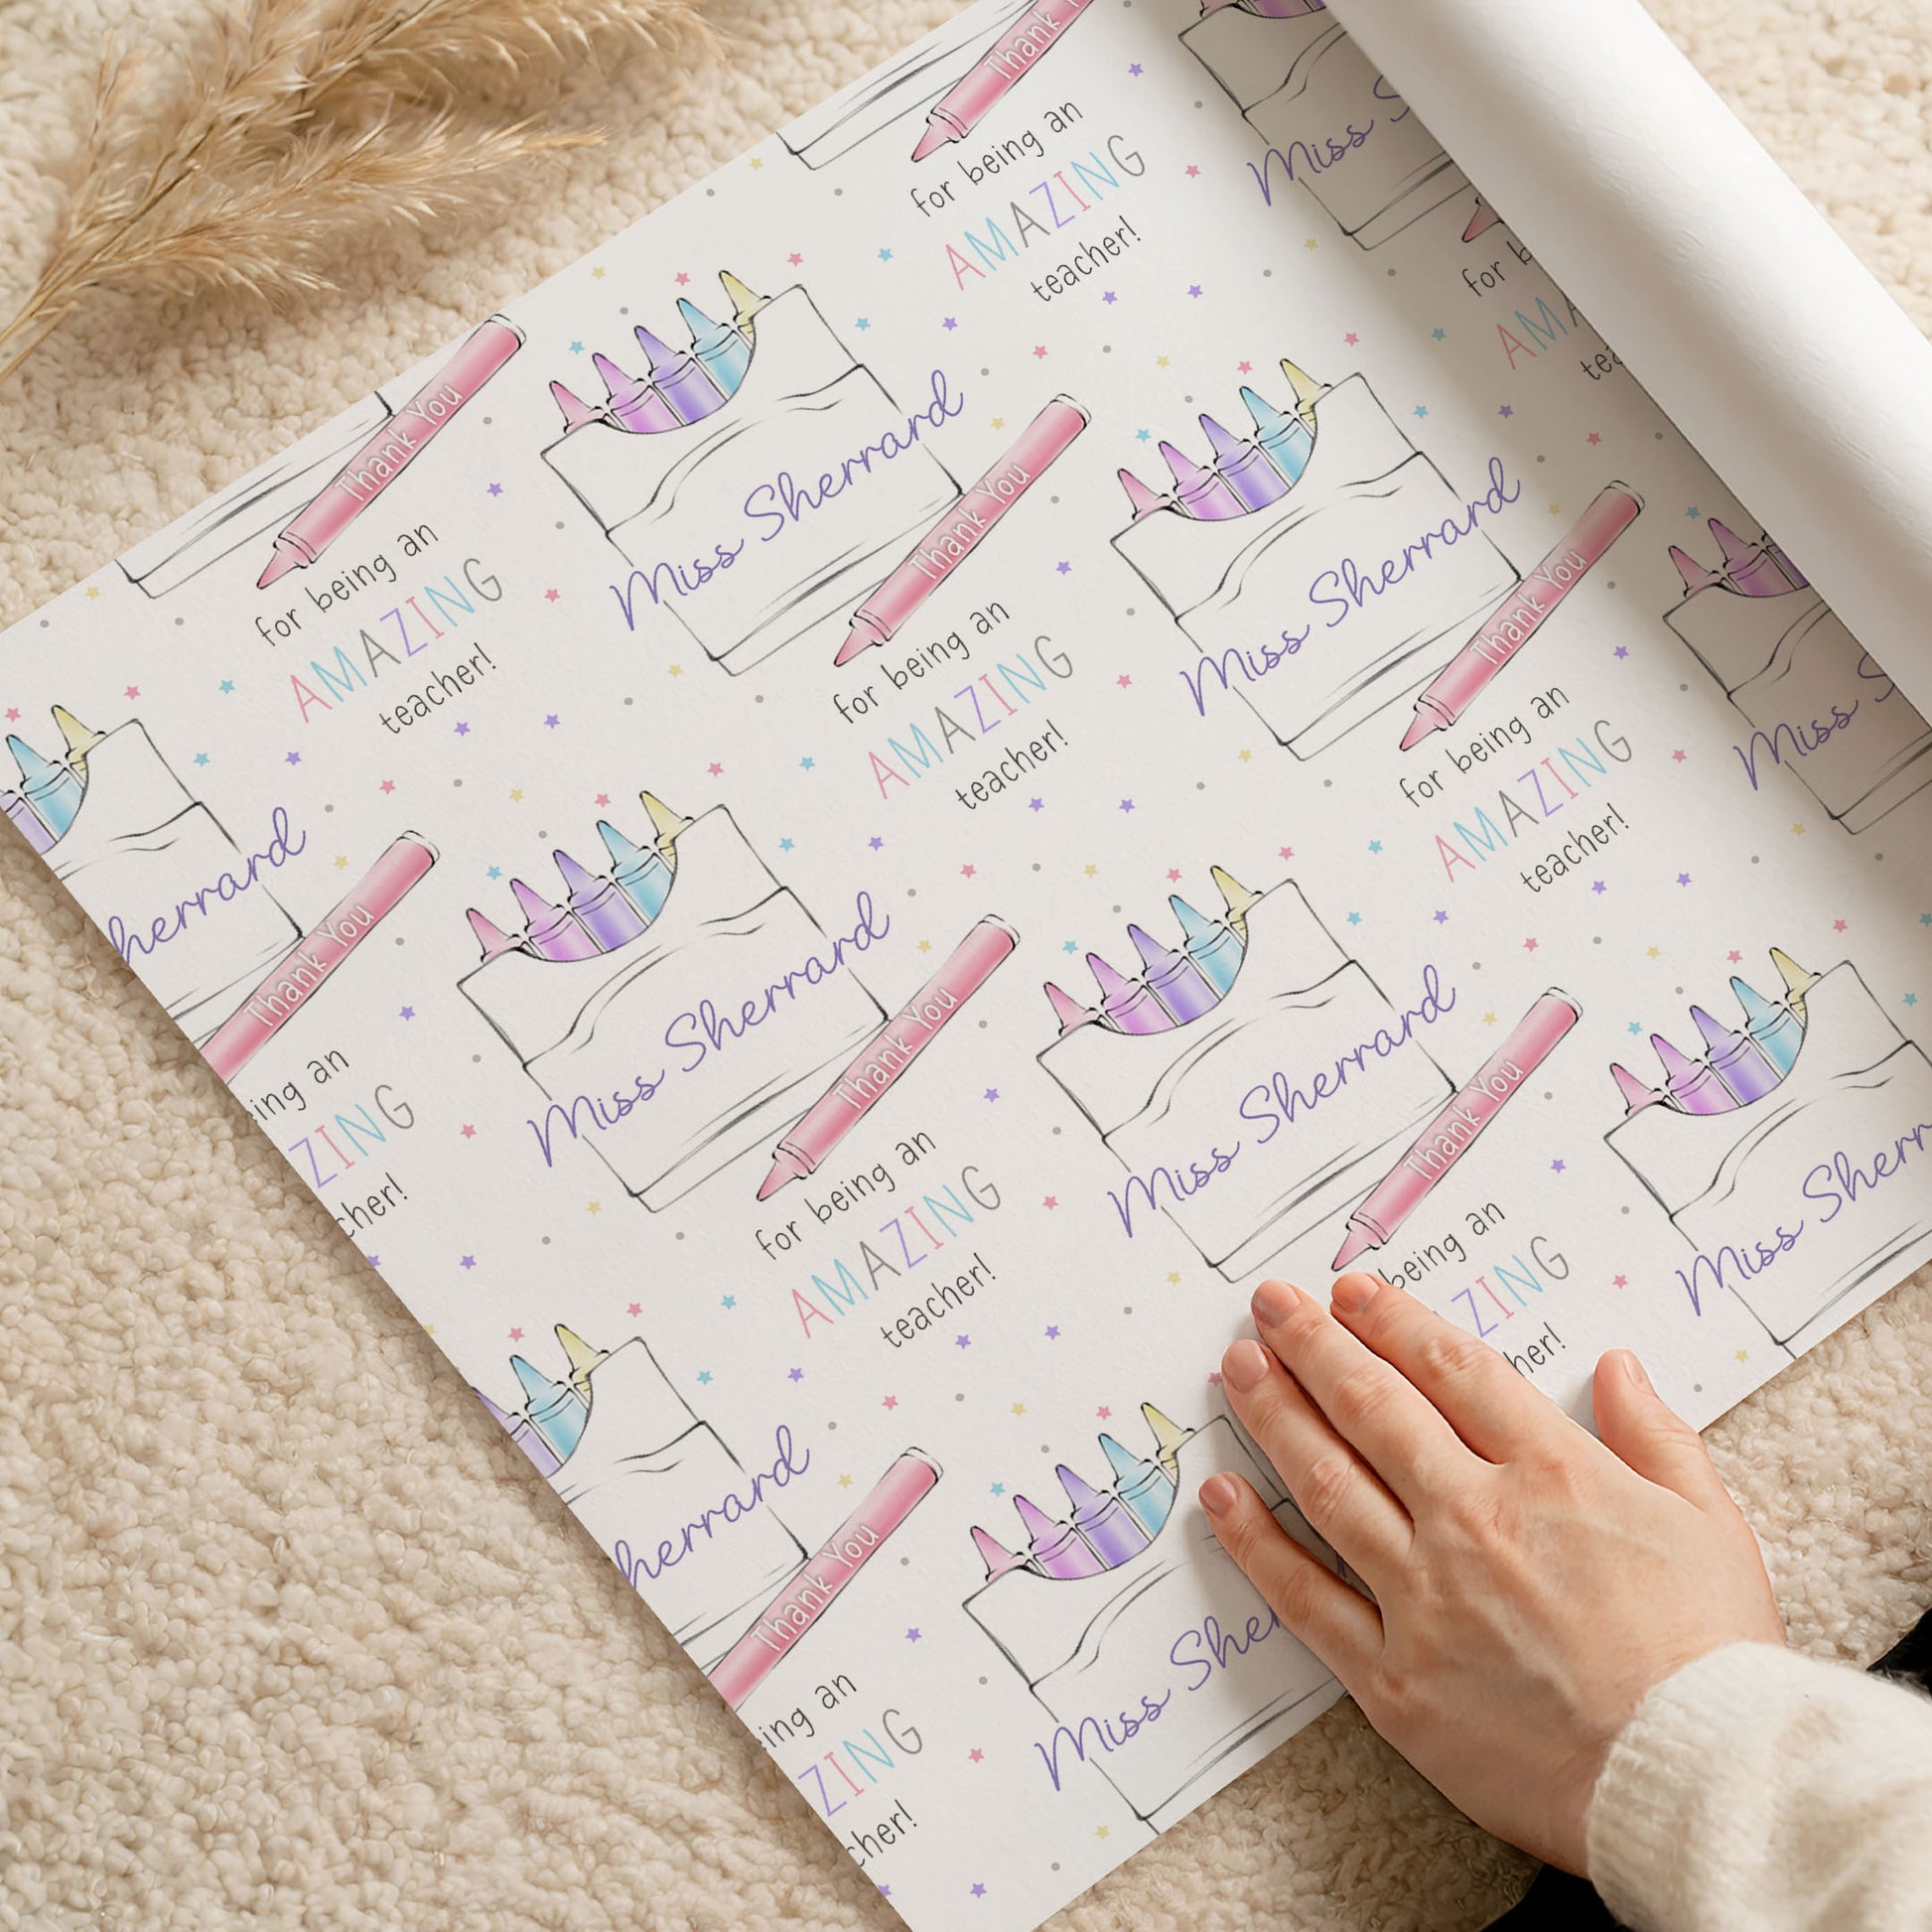 Thank
for being an
AMAZING
teacher!
Miss
for
Thank You
for being an
AMAZING
teacher!
Miss Sherrard
Thank You
for being an
AMAZING
teacher!
Miss Sherrard
Thank You
for being an
AMAZING
teacher!
Miss
herrard
Thank You
ing an
ZING
cher!
Miss Sherrard
Thank You
for being an
AMAZING
teacher!
Miss Sherrard
Thank You
being an
ZING
her!
Miss Sherr
herrard
Thank You
ing an
ZING
cher!
Miss Sher